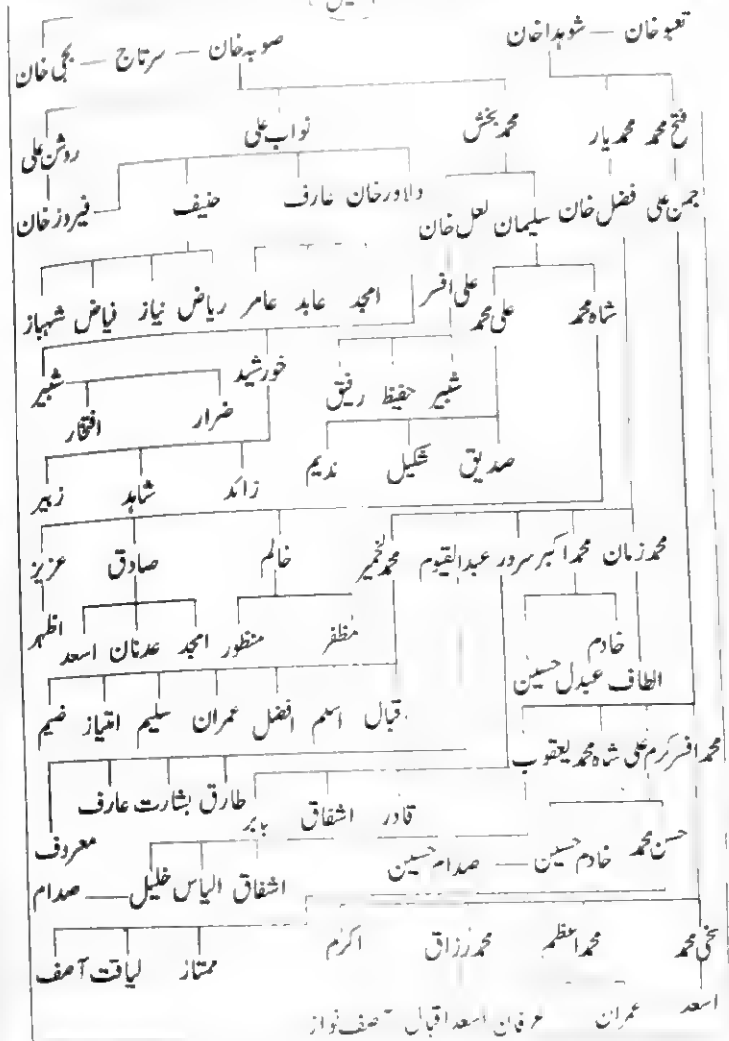 تعبو خان — شوہدا خان صوبہ خان — سرتاج — بجی خان
فتح محمد محمد یار محمد بخش نواب علی روشن علی
جمن علی فضل خان سلیمان لعل خان دلاور خان عارف حنیف فیروز خان
شاہ محمد علی محمد علی افسر امجد عابد عامر ریاض نیاز فیاض شہباز
شبیر حفیظ رفیق خورشید ضرار افتخار شبیر
صدیق شکیل ندیم زائد شاہد زبیر
محمد زمان محمد اکبر سرور عبدالقیوم محمد خالم صادق عزیز
خادم مظفر منظور امجد عدنان اسعد اظہر
الطاف عبدل حسین
اقبال اسلم افضل عمران سلیم امتیاز ضیم
محمد افسر کرم علی شاہ محمد یعقوب
قادر اشفاق بابر طارق بشارت عارف معروف
حسن محمد خادم حسین — صدام حسین اشفاق الیاس خلیل — صدام
سخی محمد محمد اعظم محمد رزاق اکرم ممتاز لیاقت آصف
اسعد عمران عرفان اسعد اقبال آصف نواز